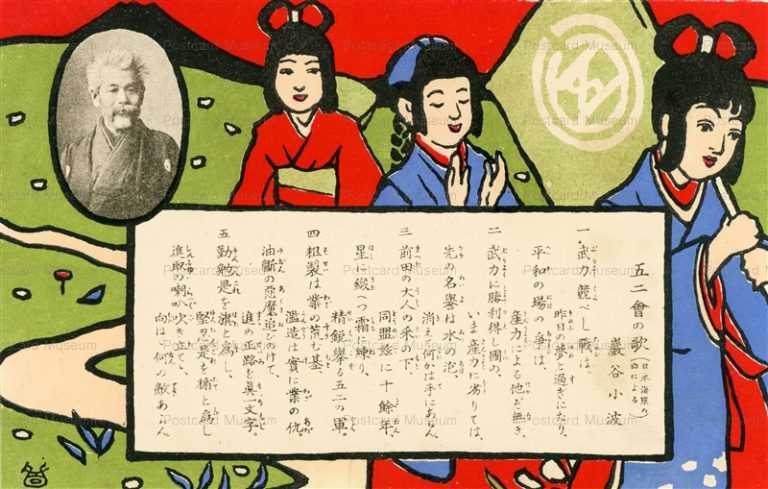 五二會の歌（日本海軍の曲による）
巖谷小波
一 武力競べし戰は、
昨日の夢と過ぎにけり、
平和の場の爭は、
産力による他ぞ無き、
二 武力に勝利得し國の、
いま産力に劣りては、
先の名譽は水の泡、
消えて何かは手にあらん、
三 前田の大人の采の下、
同盟茲に十餘年、
星に鍛へつ霜に練り、
精鋭擧る五二の軍、
四 粗製は業の荒む基、
濫造は實に業の仇
油斷の惡魔追ひのけて、
進め正路を眞一文字、
五 勤勉是を旗と爲し、
堅忍是を楯と爲し
進取の喇叭吹き立て、
向は〻何の敵あらん
Postcard Museum